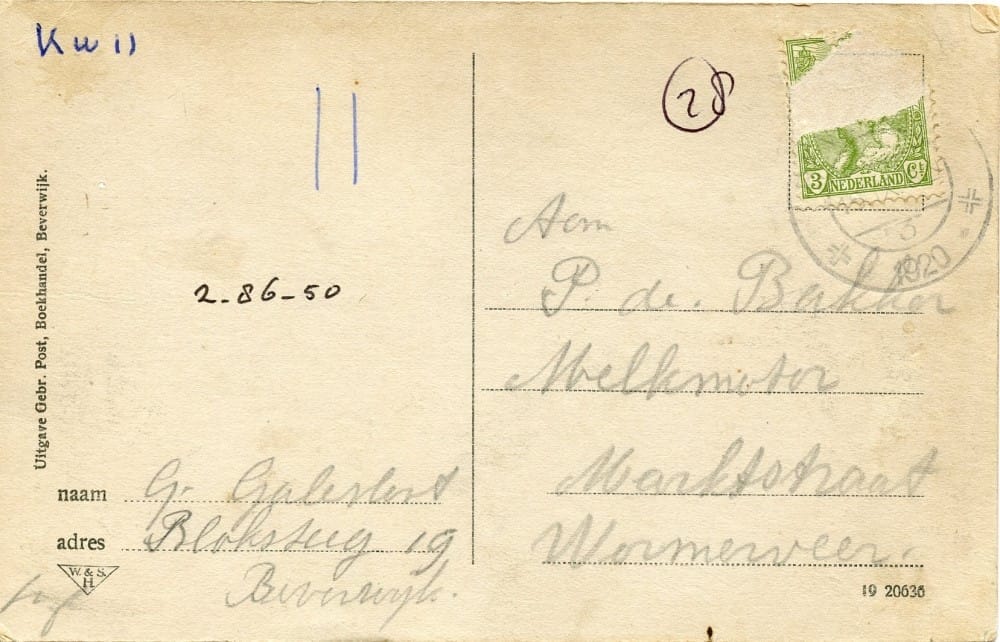 Kw 11
28
3 NEDERLAND Ct
1920
Uitgave Gebr. Post, Boekhandel, Beverwijk.
11
2-86-50
Aan
P. de. Bakker
Melkmotor
Marktstraat
Wormerveer.
naam G.
adres 19
Beverwijk.
W. & S.
H
19 20636